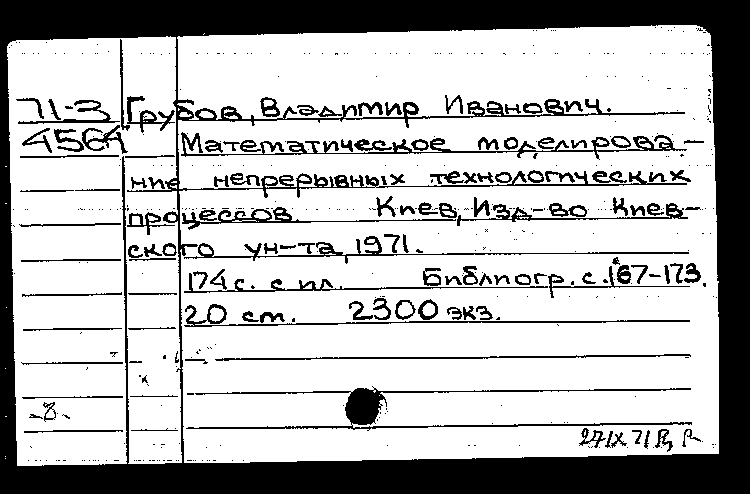 71-3 Грубов, Владимир Иванович.
4564 Математическое моделирова-
ние непрерывных технологических
процессов. Киев, Изд-во Киев-
ского ун-та, 1971.
174 с. с ил. Библиогр. с. 167-173.
20 см. 2300 экз.
-8-
27 IX 71